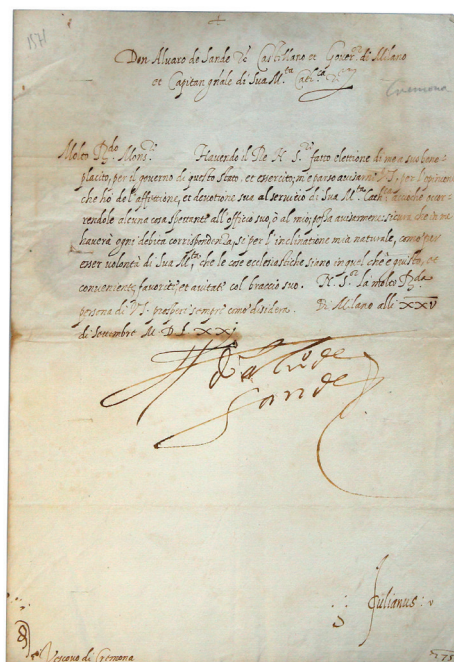 1571
Don Alvaro de Sande &c Castellano et Gover.re di Milano
et Capitan gñale di Sua M.tà Cath.ca &c
Cremona
Molto R.do Mons.r Havendo il Re N. S.re fatto elettione di me a suo bene
placito, per il governo di questo stato, et essercito, m'è parso avisarne V S, per l'opinione
che hò de l'affettione, et devotione sua al servitio di Sua M.tà Cath.ca accioche
rendole alcuna cosa spettante all'officio suo, ò al mio, possa avisarmene, sicura che in me
haverà ogni debita corrispondenza, si per l'inclinatione mia naturale, come per
esser volontà di Sua M.tà, che le cose ecclesiastiche siino in quel che è giusto, et
conveniente, favorite, et aiutate col braccio suo. N. S.re la molto R.da
persona di V S prosperi sempre come desidera. Di Milano alli XXV
di Settembre M D L XXj
Don Alvo de
Sande
Julianus
Vescovo di Cremona